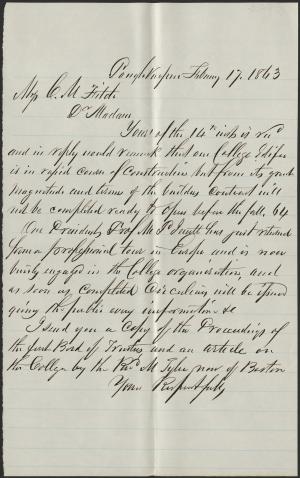 Poughkeepsie Febury 17. 1863
Mrs C. M. Fitch
Dr Madam
Yours of the 14th inst is recd
and in reply would remark that our College Edifice
is in rapid course of Construction but from its great
magnitude and terms of the builders contract will
not be completed ready to open before the fall, 64
Our President, Prof M. P. Jewett has just returned
from a professional tour in Europe and is now
busily engaged in the College organization, and
as soon as Completed Circulars will be issued
giving the public every information &c
I send you a Copy of the Proceedings of
the first Board of Trustees and an article on
the College by the Revd M Tyler now of Boston
Yours Respectfully